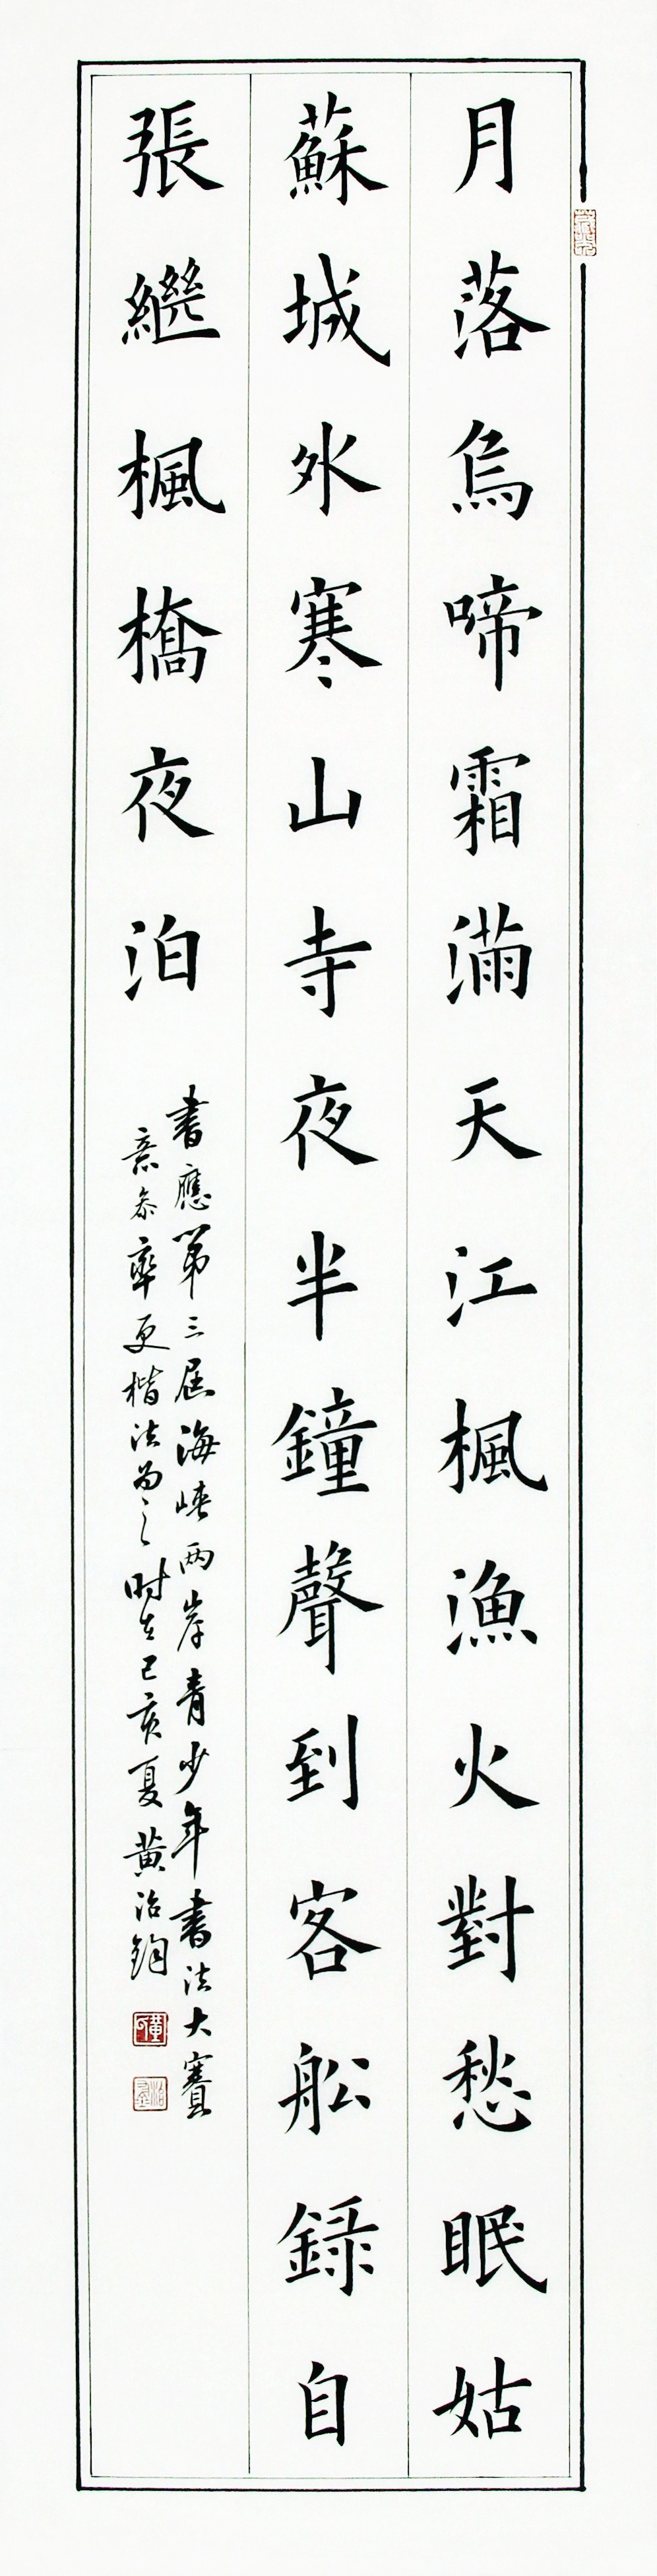 月落烏啼霜滿天江楓漁火對愁眠姑
蘇城外寒山寺夜半鐘聲到客舩錄自
張繼楓橋夜泊
書應第三屆海峽两岸青少年書法大賽
意參率更楷法為之时在己亥夏黄治鈞